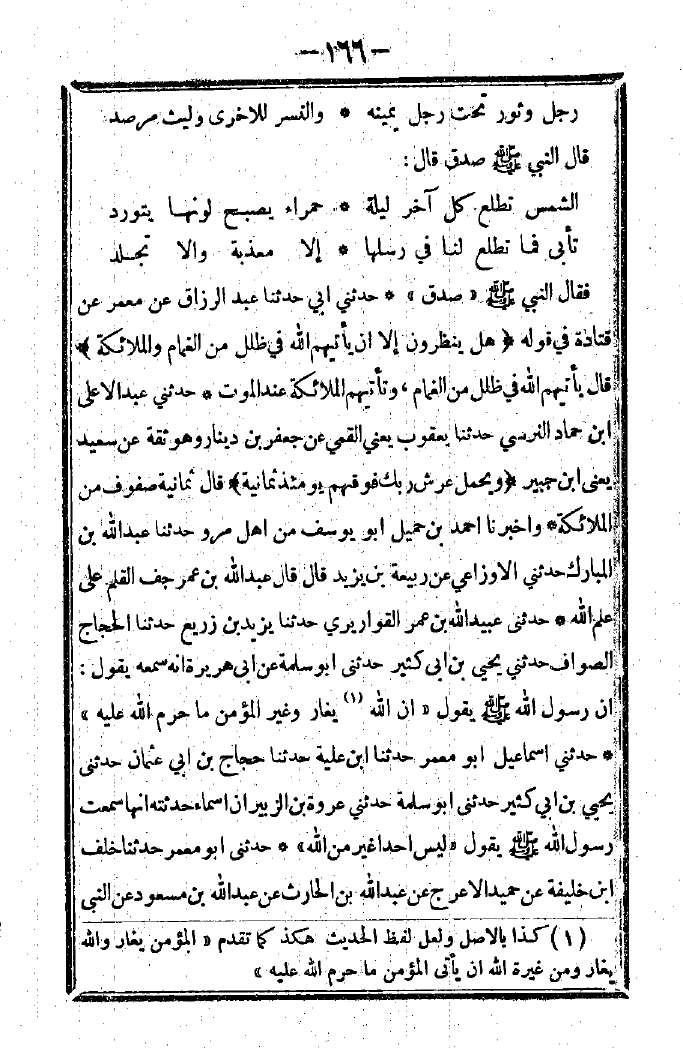 — ١٦٦ —
رجل وثور تحت رجل يمينه * والنسر للاخرى وليث مرصد
قال النبي ﷺ صدق قال :
الشمس تطلع كل آخر ليلة * حمراء يصبح لونها يتورد
تأبى فما تطلع لنا في رسلها * إلا معذبة والا تجلد
فقال النبي ﷺ « صدق » * حدثني ابي حدثنا عبد الرزاق عن معمر عن
قتادة في قوله ﴿ هل ينظرون إلا ان يأتيهم الله في ظلل من الغمام والملائكة ﴾
قال يأتيهم الله في ظلل من الغمام ، وتأتيهم الملائكة عند الموت * حدثني عبد الاعلى
ابن حماد النرسي حدثنا يعقوب يعني القمي عن جعفر بن دينار وهو ثقة عن سعيد
يعنى ابن جبير ﴿ويحمل عرش ربك فوقهم يومئذ ثمانية﴾ قال ثمانية صفوف من
الملائكة * واخبرنا احمد بن جميل ابو يوسف من اهل مرو حدثنا عبدالله بن
المبارك حدثني الاوزاعي عن ربيعة بن يزيد قال قال عبدالله بن عمر جف القلم على
علم الله * حدثنى عبيدالله بن عمر القواريري حدثنا يزيد بن زريع حدثنا الحجاج
الصواف حدثني يحيى بن ابى كثير حدثنى ابو سلمة عن ابى هريرة انه سمعه يقول :
ان رسول الله ﷺ يقول « ان الله (١) يغار وغير المؤمن ما حرم الله عليه »
* حدثني اسماعيل ابو معمر حدثنا ابن علية حدثنا حجاج بن ابي عثمان حدثنى
يحيى بن ابى كثير حدثنى ابو سلمة حدثني عروة بن الزبير ان اسماء حدثته انها سمعت
رسول الله ﷺ يقول «ليس احد اغير من الله» * حدثنى ابو معمر حدثنا خلف
ابن خليفة عن حميد الاعرج عن عبدالله بن الحارث عن عبدالله بن مسعود عن النبي
(١) كذا بالاصل ولعل لفظ الحديث هكذ كما تقدم « المؤمن يغار والله
يغار ومن غيرة الله ان يأتى المؤمن ما حرم الله عليه »